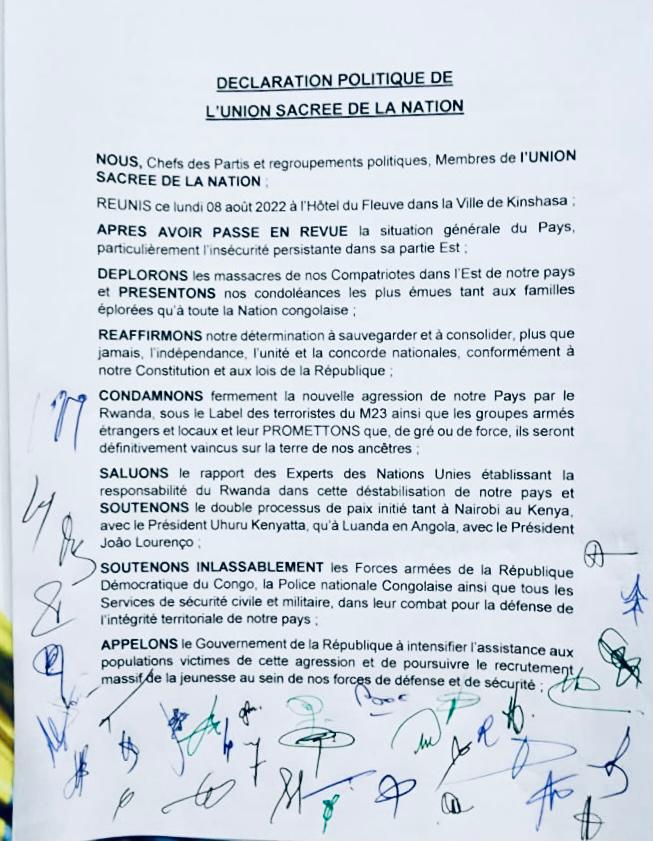 DECLARATION POLITIQUE DE
L'UNION SACREE DE LA NATION
NOUS, Chefs des Partis et regroupements politiques, Membres de l'UNION
SACREE DE LA NATION ;
REUNIS ce lundi 08 août 2022 à l'Hôtel du Fleuve dans la Ville de Kinshasa ;
APRES AVOIR PASSE EN REVUE la situation générale du Pays,
particulièrement l'insécurité persistante dans sa partie Est ;
DEPLORONS les massacres de nos Compatriotes dans l'Est de notre pays
et PRESENTONS nos condoléances les plus émues tant aux familles
éplorées qu'à toute la Nation congolaise ;
REAFFIRMONS notre détermination à sauvegarder et à consolider, plus que
jamais, l'indépendance, l'unité et la concorde nationales, conformément à
notre Constitution et aux lois de la République ;
CONDAMNONS fermement la nouvelle agression de notre Pays par le
Rwanda, sous le Label des terroristes du M23 ainsi que les groupes armés
étrangers et locaux et leur PROMETTONS que, de gré ou de force, ils seront
définitivement vaincus sur la terre de nos ancêtres ;
SALUONS le rapport des Experts des Nations Unies établissant la
responsabilité du Rwanda dans cette déstabilisation de notre pays et
SOUTENONS le double processus de paix initié tant à Nairobi au Kenya,
avec le Président Uhuru Kenyatta, qu'à Luanda en Angola, avec le Président
João Lourenço ;
SOUTENONS INLASSABLEMENT les Forces armées de la République
Démocratique du Congo, la Police nationale Congolaise ainsi que tous les
Services de sécurité civile et militaire, dans leur combat pour la défense de
l'intégrité territoriale de notre pays ;
APPELONS le Gouvernement de la République à intensifier l'assistance aux
populations victimes de cette agression et de poursuivre le recrutement
massif de la jeunesse au sein de nos forces de défense et de sécurité ;